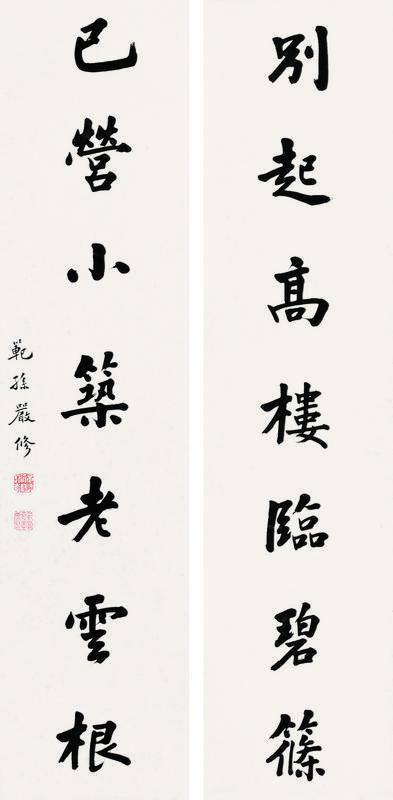 別起高樓臨碧篠
已營小築老雲根
範孫嚴修